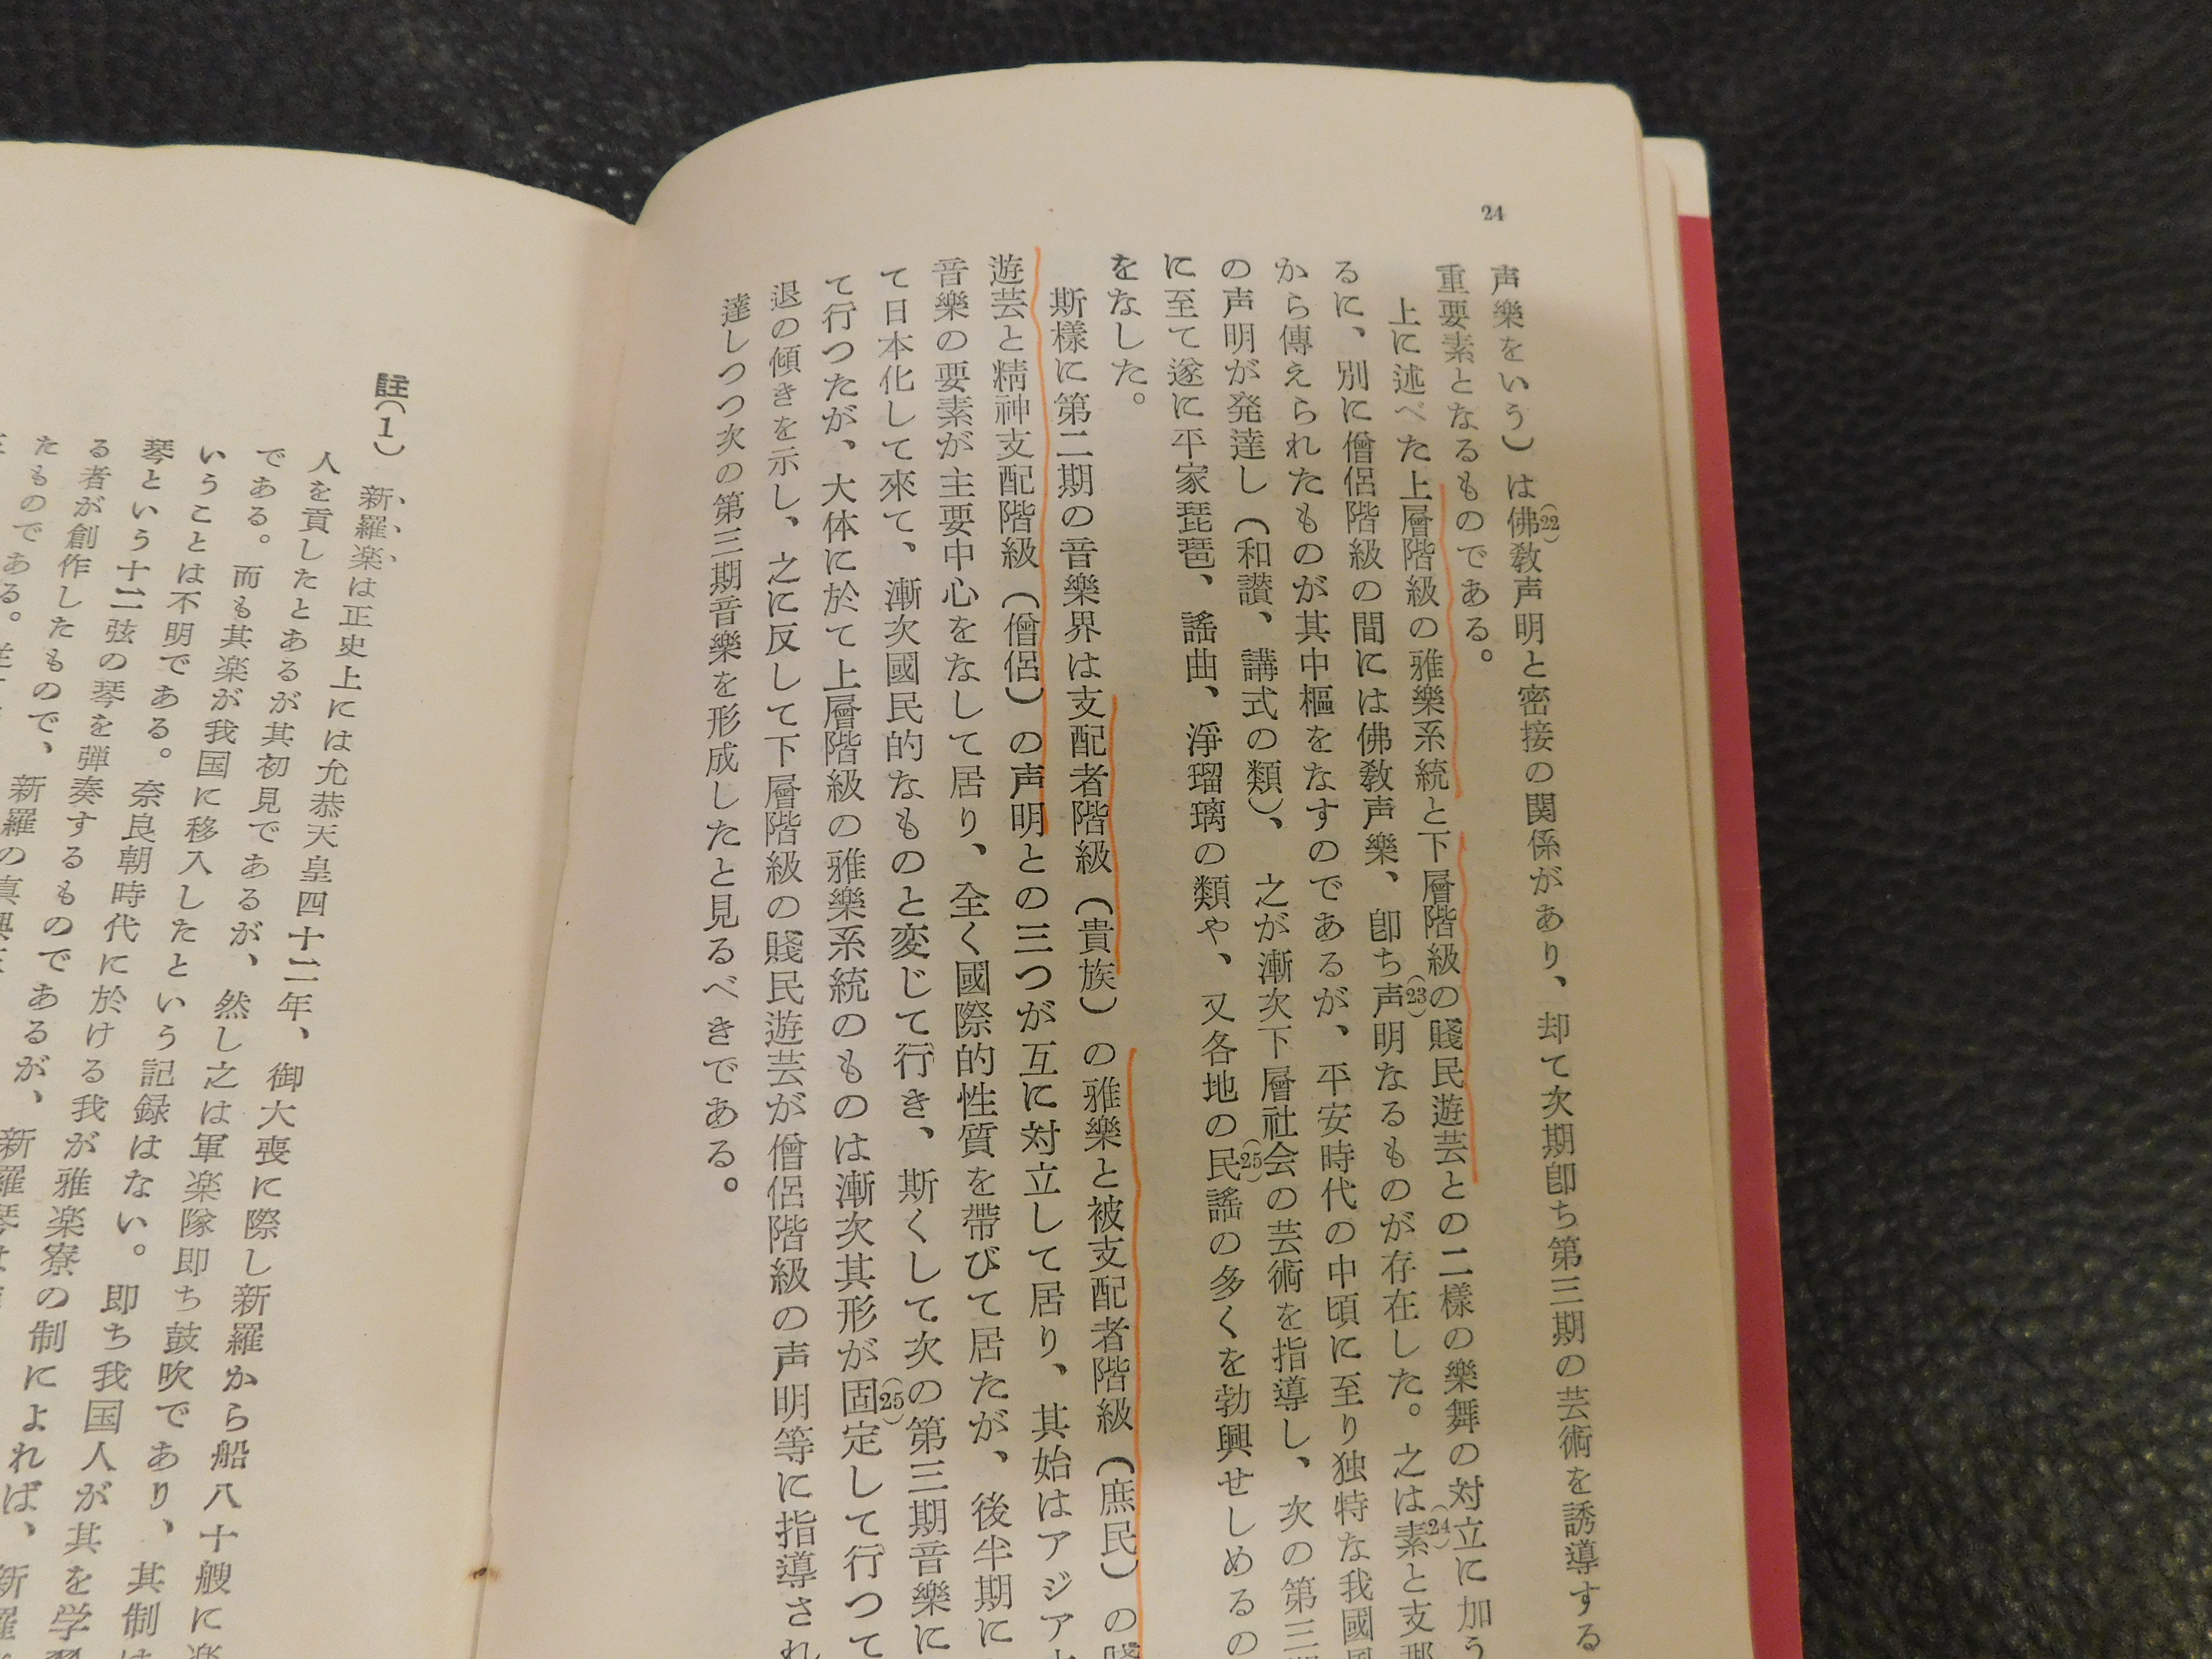 24
声樂をいう）は佛教声明と密接の関係があり、却て次期卽ち第三期の芸術を誘導する
(22)
重要素となるものである。
上に述べた上層階級の雅樂系統と下層階級の賤民遊芸との二様の樂舞の対立に加う
るに、別に僧侶階級の間には佛教声樂、卽ち声明なるものが存在した。之は素と支那
(23)
(24)
から傳えられたものが其中樞をなすのであるが、平安時代の中頃に至り独特な我國
の声明が発達し（和讃、講式の類）、之が漸次下層社会の芸術を指導し、次の第三
に至て遂に平家琵琶、謠曲、淨瑠璃の類や、又各地の民謠の多くを勃興せしめるの
(25)
をなした。
斯樣に第二期の音樂界は支配者階級（貴族）の雅樂と被支配者階級（庶民）の賤
遊芸と精神支配階級（僧侶）の声明との三つが互に対立して居り、其始はアジア
音樂の要素が主要中心をなして居り、全く國際的性質を帶びて居たが、後半期に
て日本化して來て、漸次國民的なものと変じて行き、斯くして次の第三期音樂に
て行つたが、大体に於て上層階級の雅樂系統のものは漸次其形が固定して行つて
(25)
退の傾きを示し、之に反して下層階級の賤民遊芸が僧侶階級の声明等に指導され
達しつつ次の第三期音樂を形成したと見るべきである。
註（1） 新羅楽は正史上には允恭天皇四十二年、御大喪に際し新羅から船八十艘に楽
人を貢したとあるが其初見であるが、然し之は軍楽隊即ち鼓吹であり、其制は
である。而も其楽が我国に移入したという記録はない。即ち我国人が其を学習
いうことは不明である。奈良朝時代に於ける我が雅楽寮の制によれば、新羅
琴という十二弦の琴を弾奏するものであるが、新羅琴は
る者が創作したもので、新羅の真興
たものである。